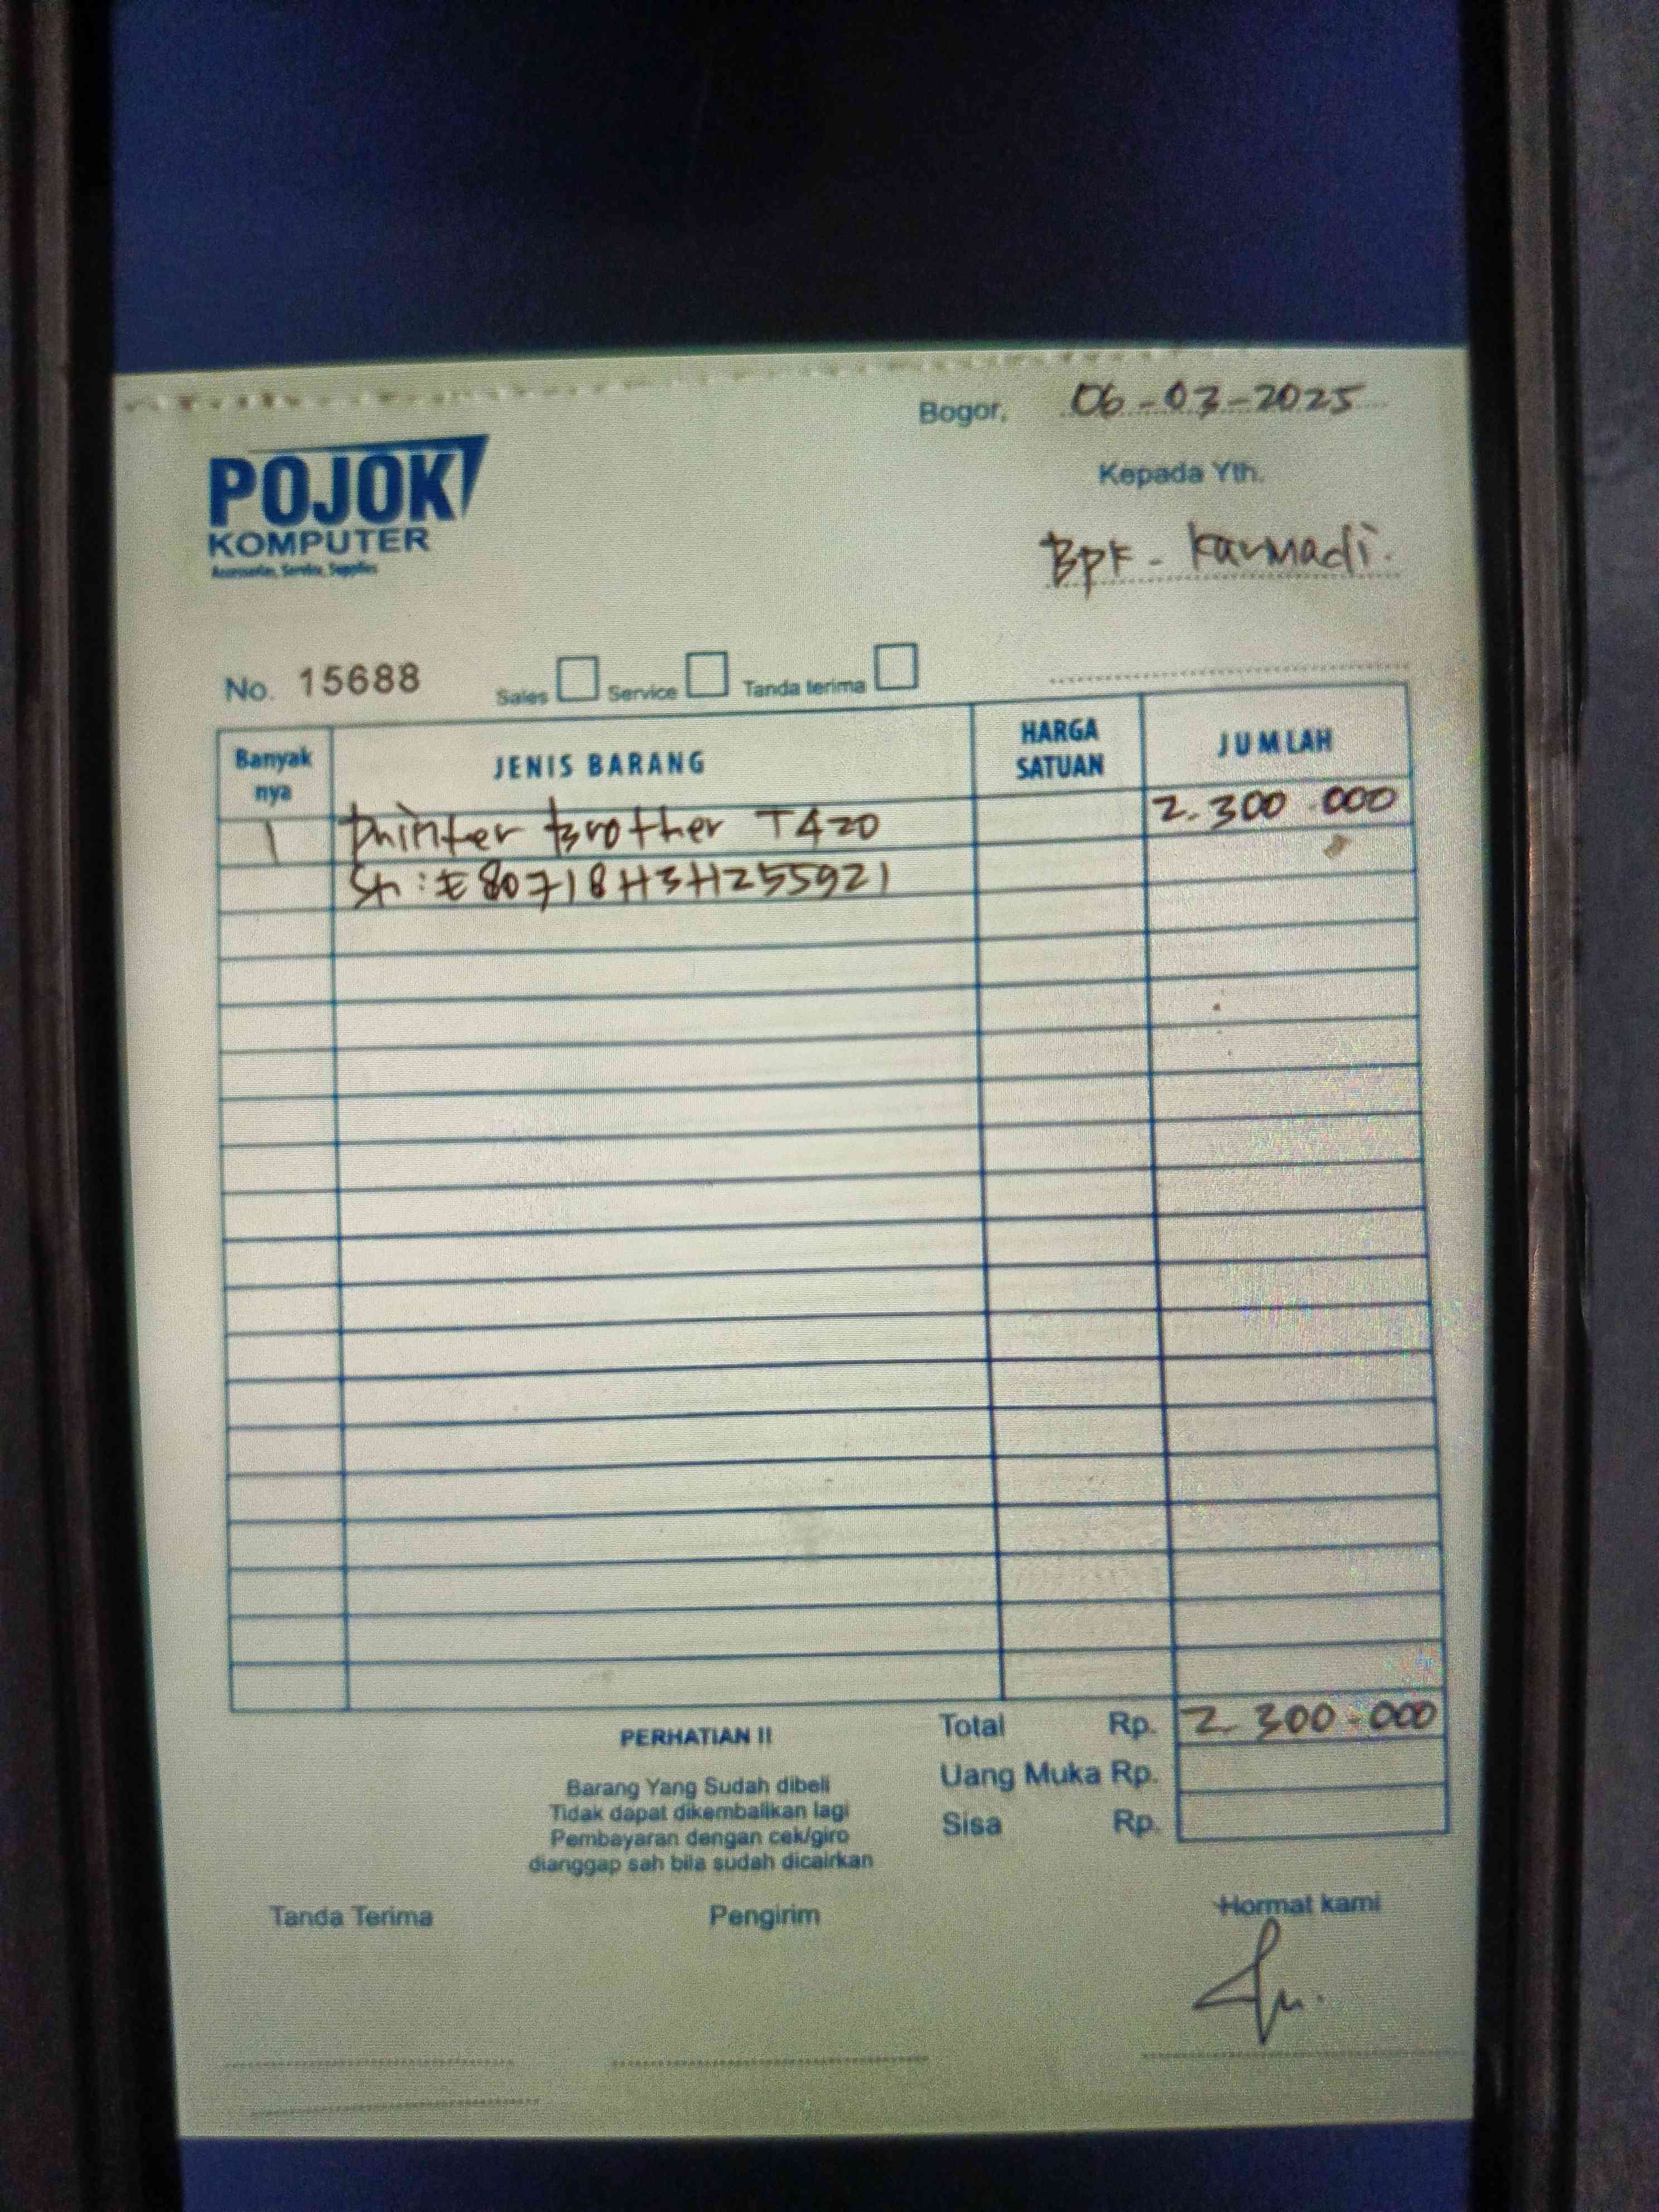 Bogor, 06-03-2025
POJOK
KOMPUTER
Accessories, Service, Supplies
Kepada Yth.
Bpk. Karmadi.
No. 15688
Sales Service Tanda terima
Banyak nya JENIS BARANG HARGA SATUAN JUMLAH
1 Printer Brother T420 2.300.000
Sn: E80718H3H255921
PERHATIAN !!
Barang Yang Sudah dibeli
Tidak dapat dikembalikan lagi
Pembayaran dengan cek/giro
dianggap sah bila sudah dicairkan
Total Rp. 2.300.000
Uang Muka Rp.
Sisa Rp.
Tanda Terima Pengirim Hormat kami